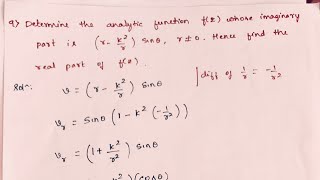 9) Determine the analytic function f(z) whose imaginary
part is (r - k²/r) sinθ, r ≠ 0. Hence find the
real part of f(z).
Solⁿ: v = (r - k²/r) sinθ | diff of 1/r = -1/r²
v_r = sinθ (1 - k² (-1/r²))
v_r = (1 + k²/r²) sinθ